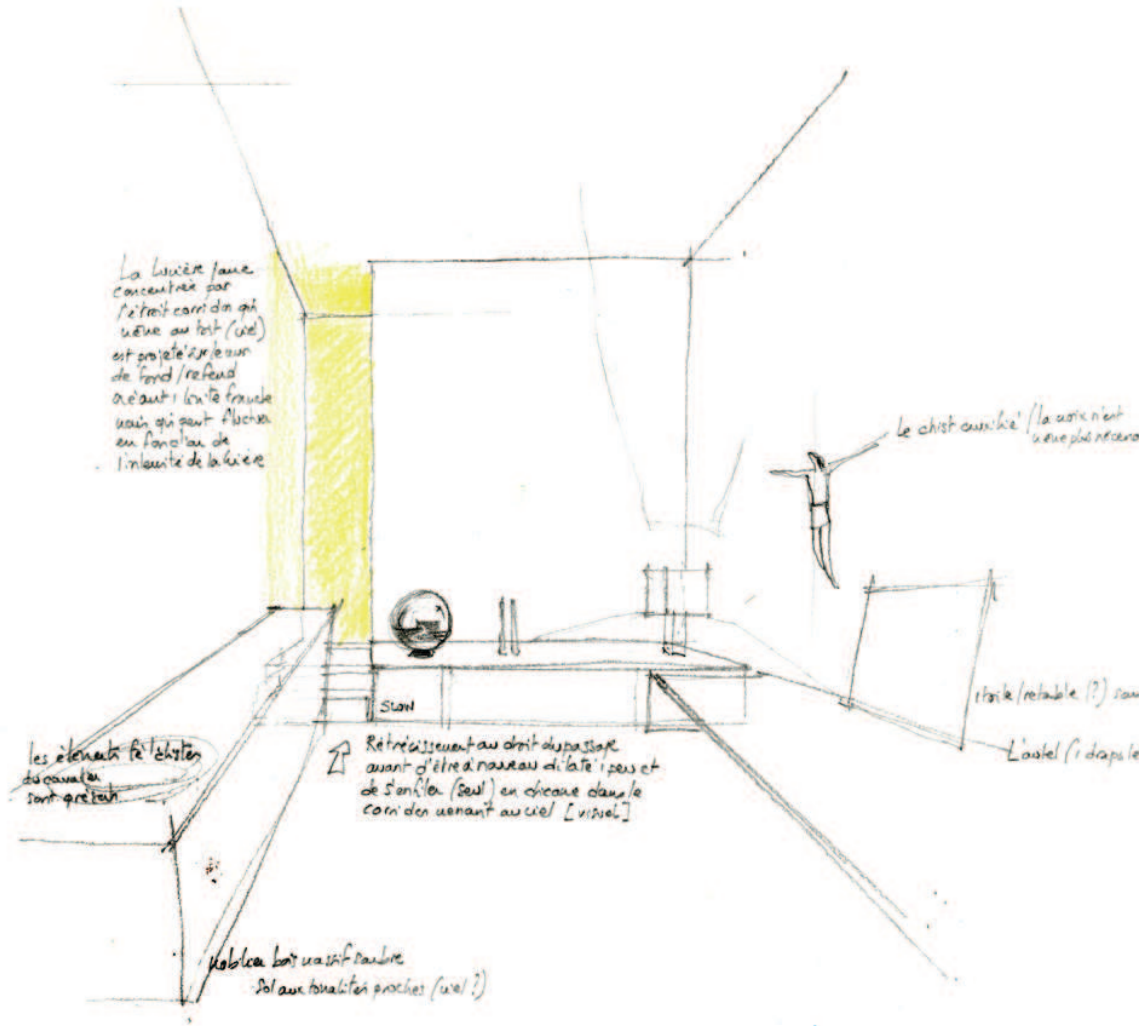 La lumière jaune
concentrée par
l'étroit corridor qui
mène au toit (ciel)
est projeté sur le mur
de fond/refend
créant 1 limite franche
mais qui peut fluctuer
en fonction de
l'intensité de la lumière
Le christ crucifié / la croix n'est
même plus nécess
1 toile/retable (?) sau
L'autel (1 drapule
SLOW
Rétrécissement au droit du passage
avant d'être à nouveau dilaté 1 peu et
de s'enfiler (seul) en chicane dans le
corridor menant au ciel [visuel]
les éléments fétichistes
du cavalier
sont présents
mobilier bois massif sombre
sol aux tonalités proches (miel ?)